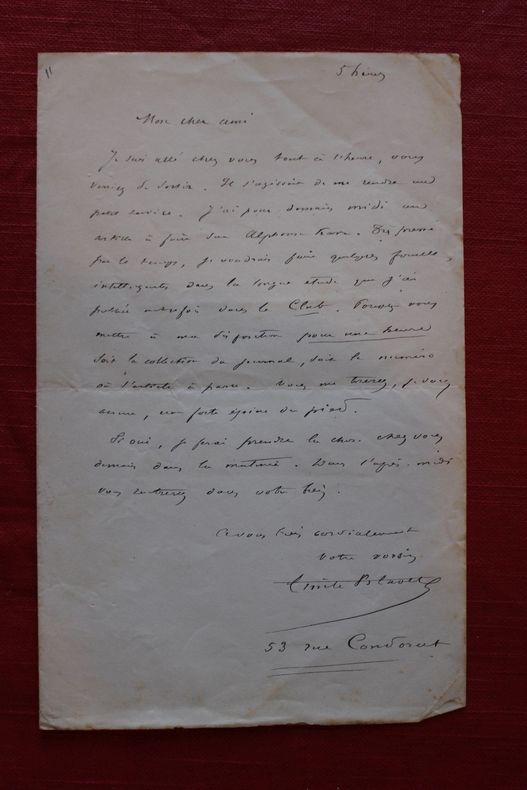 5 heures
Mon cher ami
Je suis allé chez vous tout à l'heure, vous
veniez de sortir. Il s'agissait de me rendre un
petit service. J'ai pour demain midi un
article à faire sur Alphonse Karr. Très pressé
par le temps, je voudrais faire quelques fouilles
intelligentes dans la longue étude que j'ai
publiée autrefois dans le Club. Pouvez vous
mettre à ma disposition pour une heure
soit la collection du journal, soit le numéro
où l'article a paru. Vous me tirerez, je vous
assure, une forte épine du pied.
Si oui, je ferai prendre la chose chez vous
demain dans la matinée. Dans l'après-midi
vous rentrerez dans votre bien.
A vous très cordialement
Votre voisin
Emile Blavet
53 rue Condorcet